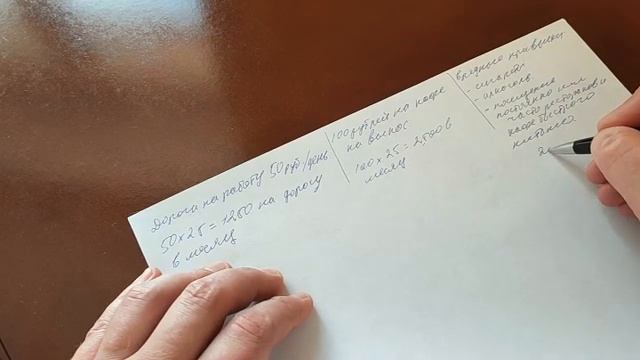 Дорога на работу 50 руб/день
50х25=1250 на дорогу
в месяц
100 рублей на кофе
на вынос
100х25=2,500 в
месяц
вредные привычки
- сигареты
- алкоголь
- посещение
постоянно или
часто ресторанов и
кафе быстрого
питания